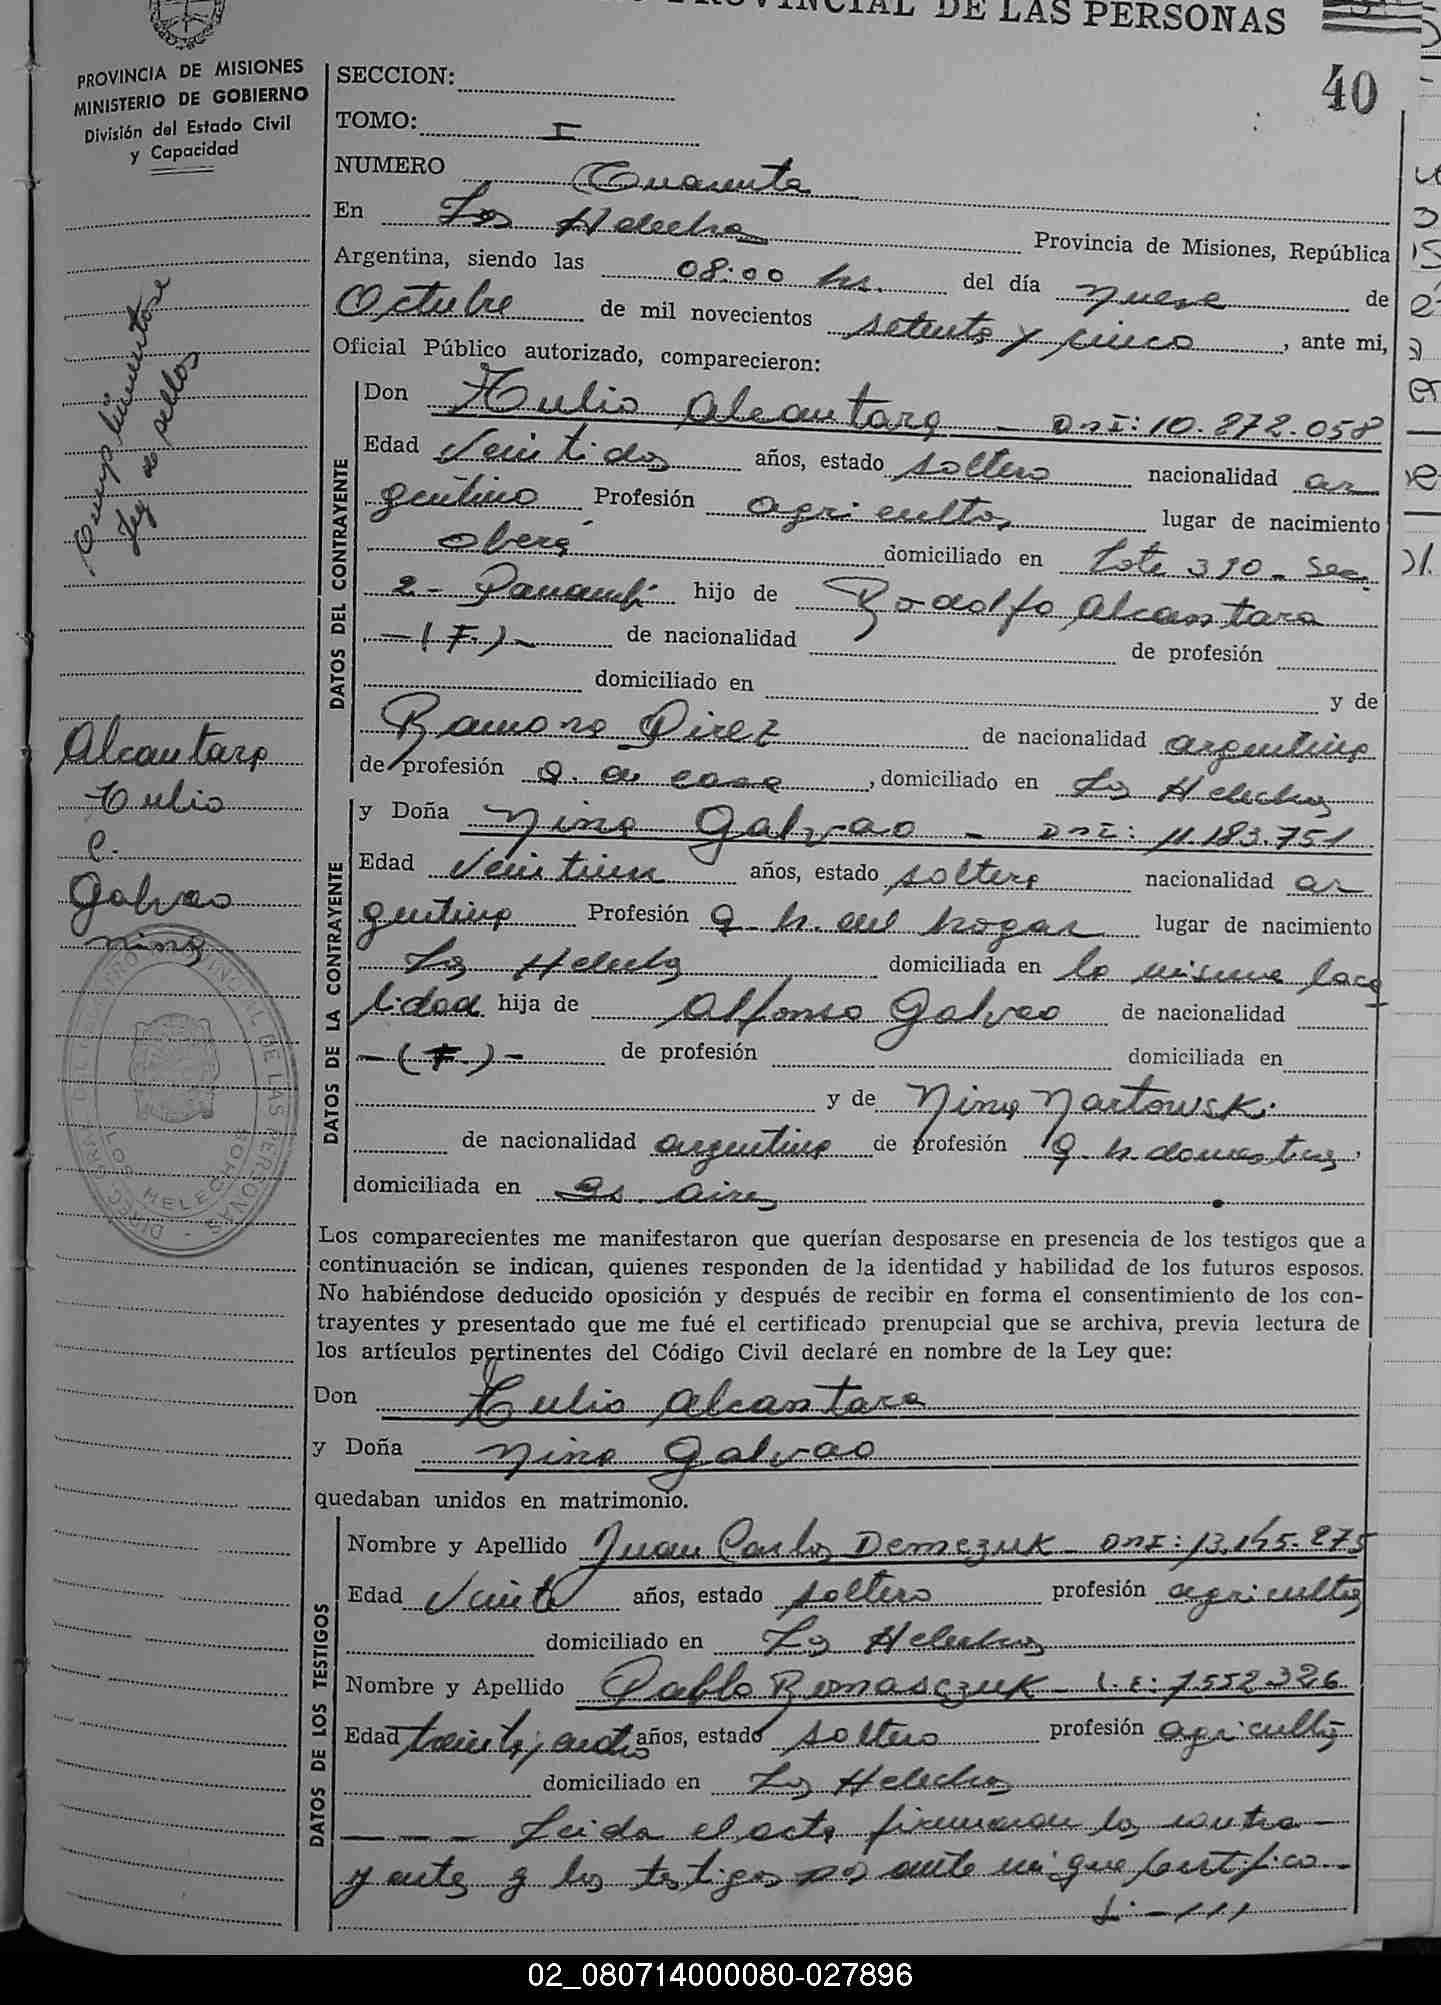 PROVINCIAL DE LAS PERSONAS
40
PROVINCIA DE MISIONES
MINISTERIO DE GOBIERNO
División del Estado Civil
y Capacidad
SECCION:
TOMO: I
NUMERO Cuarenta
En Los Helechos Provincia de Misiones, República
Argentina, siendo las 08:00 hs. del día nueve de
Octubre de mil novecientos setenta y cinco, ante mi,
Oficial Público autorizado, comparecieron:
DATOS DEL CONTRAYENTE
Don Tulio Alcantara - DNI: 10.872.058
Edad Veintidos años, estado soltero nacionalidad ar
gentino Profesión agricultor lugar de nacimiento
Oberá domiciliado en Lote 310 - Sec.
2 - Panambí hijo de Rodolfo Alcantara
-(F.)- de nacionalidad de profesión
domiciliado en y de
Ramona Pirez de nacionalidad argentina
de profesión Q. de casa, domiciliado en Los Helechos
DATOS DE LA CONTRAYENTE
y Doña Nina Galvao - DNI: 11.183.751
Edad Veintiun años, estado soltera nacionalidad ar
gentina Profesión Q. h. del hogar lugar de nacimiento
Los Helechos domiciliada en la misma loca
lidad hija de Alfonso Galvao de nacionalidad
-(F.)- de profesión domiciliada en
y de Nina Nartowski
de nacionalidad argentina de profesión Q. h. domesticos,
domiciliada en Bs. Aires
Los comparecientes me manifestaron que querían desposarse en presencia de los testigos que a
continuación se indican, quienes responden de la identidad y habilidad de los futuros esposos.
No habiéndose deducido oposición y después de recibir en forma el consentimiento de los con-
trayentes y presentado que me fué el certificado prenupcial que se archiva, previa lectura de
los artículos pertinentes del Código Civil declaré en nombre de la Ley que:
Don Tulio Alcantara
y Doña Nina Galvao
quedaban unidos en matrimonio.
DATOS DE LOS TESTIGOS
Nombre y Apellido Juan Carlos Demczuk - DNI: 13.145.275
Edad Veinte años, estado soltero profesión agricultor
domiciliado en Los Helechos
Nombre y Apellido Pablo Romasczuk - L.E: 7.552.326
Edad treinta y ocho años, estado soltero profesión agricultor
domiciliado en Los Helechos
- - - Leida el acta firmaron los contra-
yentes y los testigos por ante mí que certifico.-
Cumplimentose
Ley de sellos
Alcantara
Tulio
C.
Galvao
Nina
LOS HELECHOS
02_080714000080-027896